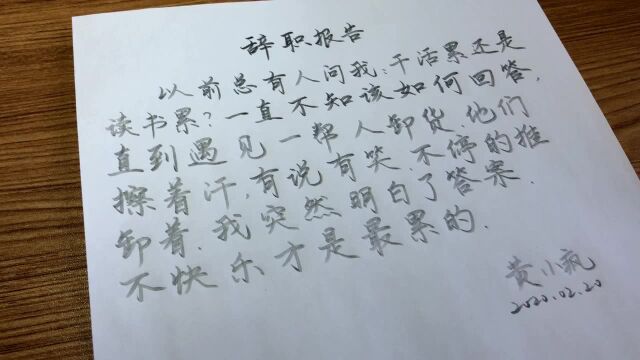 辞职报告
以前总有人问我:干活累还是
读书累?一直不知该如何回答,
直到遇见一帮人卸货.他们
擦着汗,有说有笑.不停的推
卸着.我突然明白了答案.
不快乐才是最累的.
黄小疯
2020.02.20